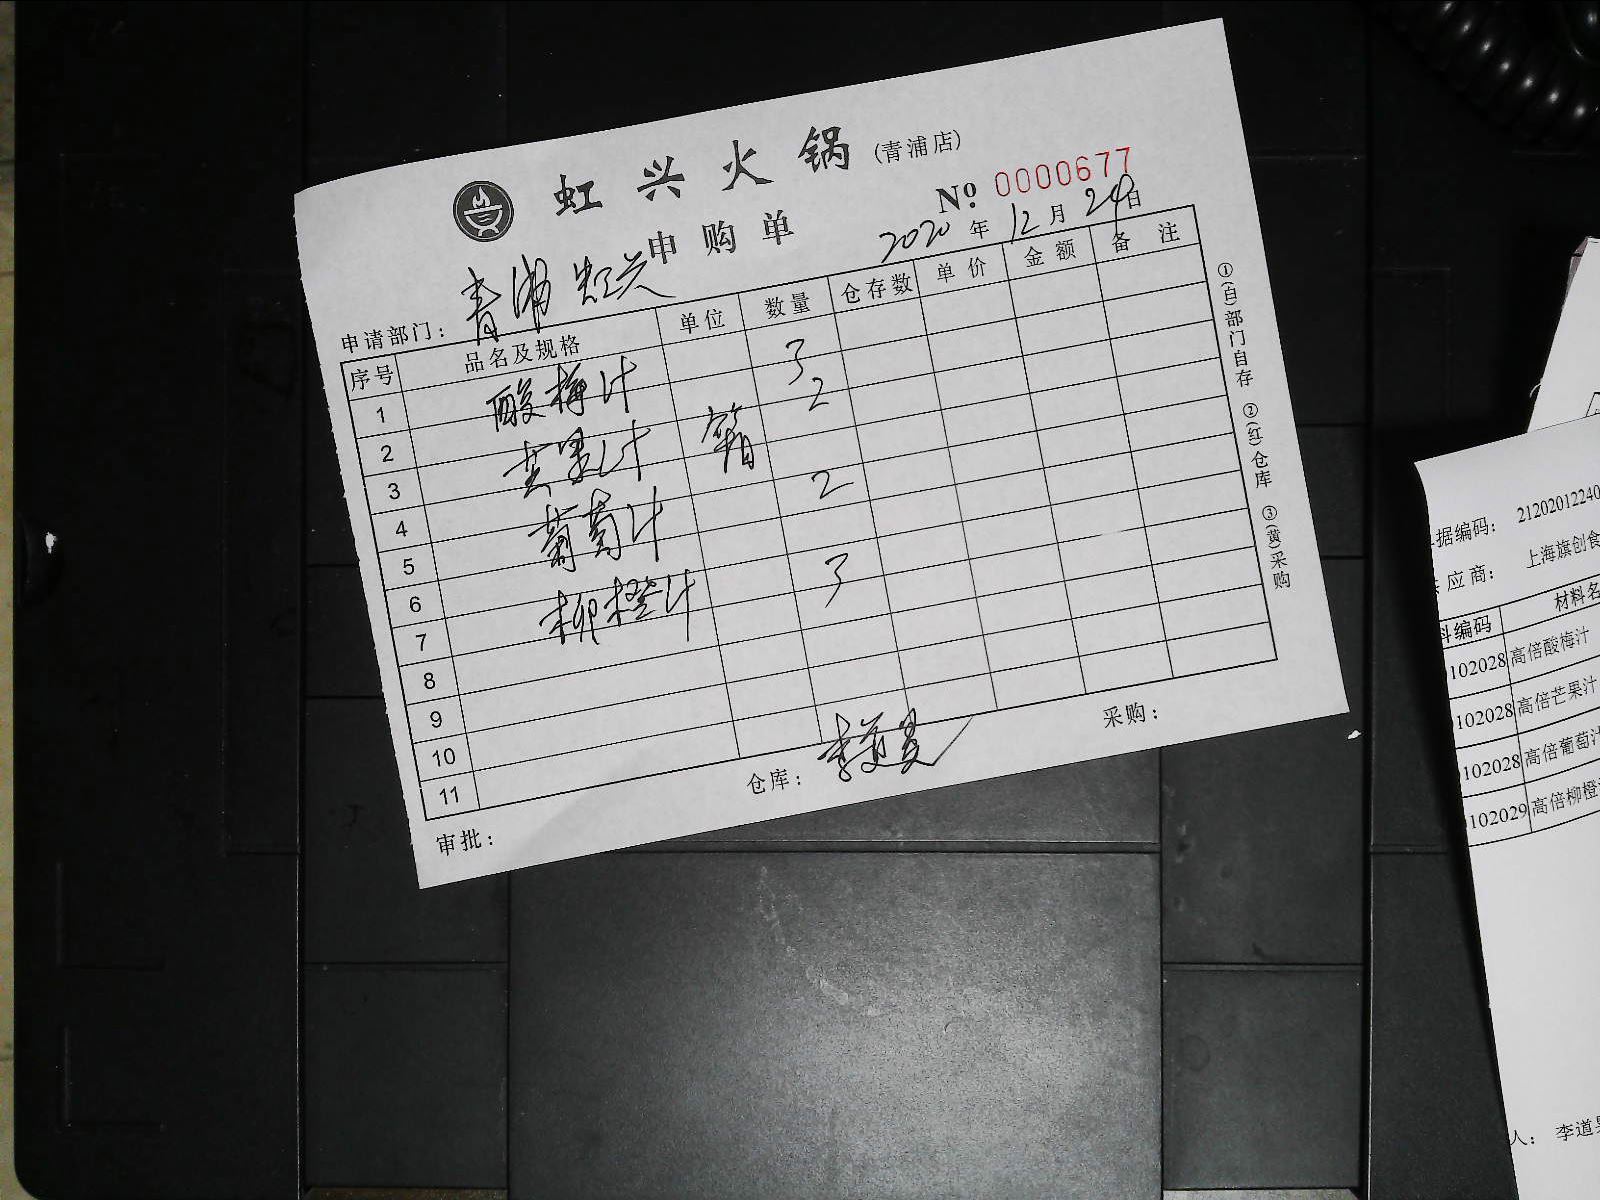 虹兴火锅(青浦店)
申购单
No 0000677
2020年12月24日
申请部门:青浦虹兴
序号 品名及规格 单位 数量 仓存数 单价 金额 备注
1 酸梅汁 3
2 2
3 芒果汁 箱
4
5 葡萄汁 2
6
7 柳橙汁 3
8
9
10
11
审批: 仓库: 采购:
①(白)部门自存 ②(红)仓库 ③(黄)采购
据编码: 2120201224
应商: 上海旗创食
料编码 材料名
102028 高倍酸梅汁
102028 高倍芒果汁
102028 高倍葡萄汁
102029 高倍柳橙
人: 李道